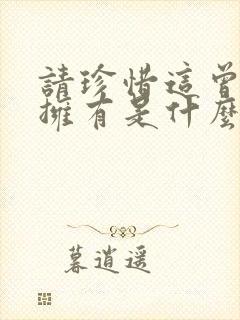 請珍惜這曾
擁有是什麼
暮逍遥